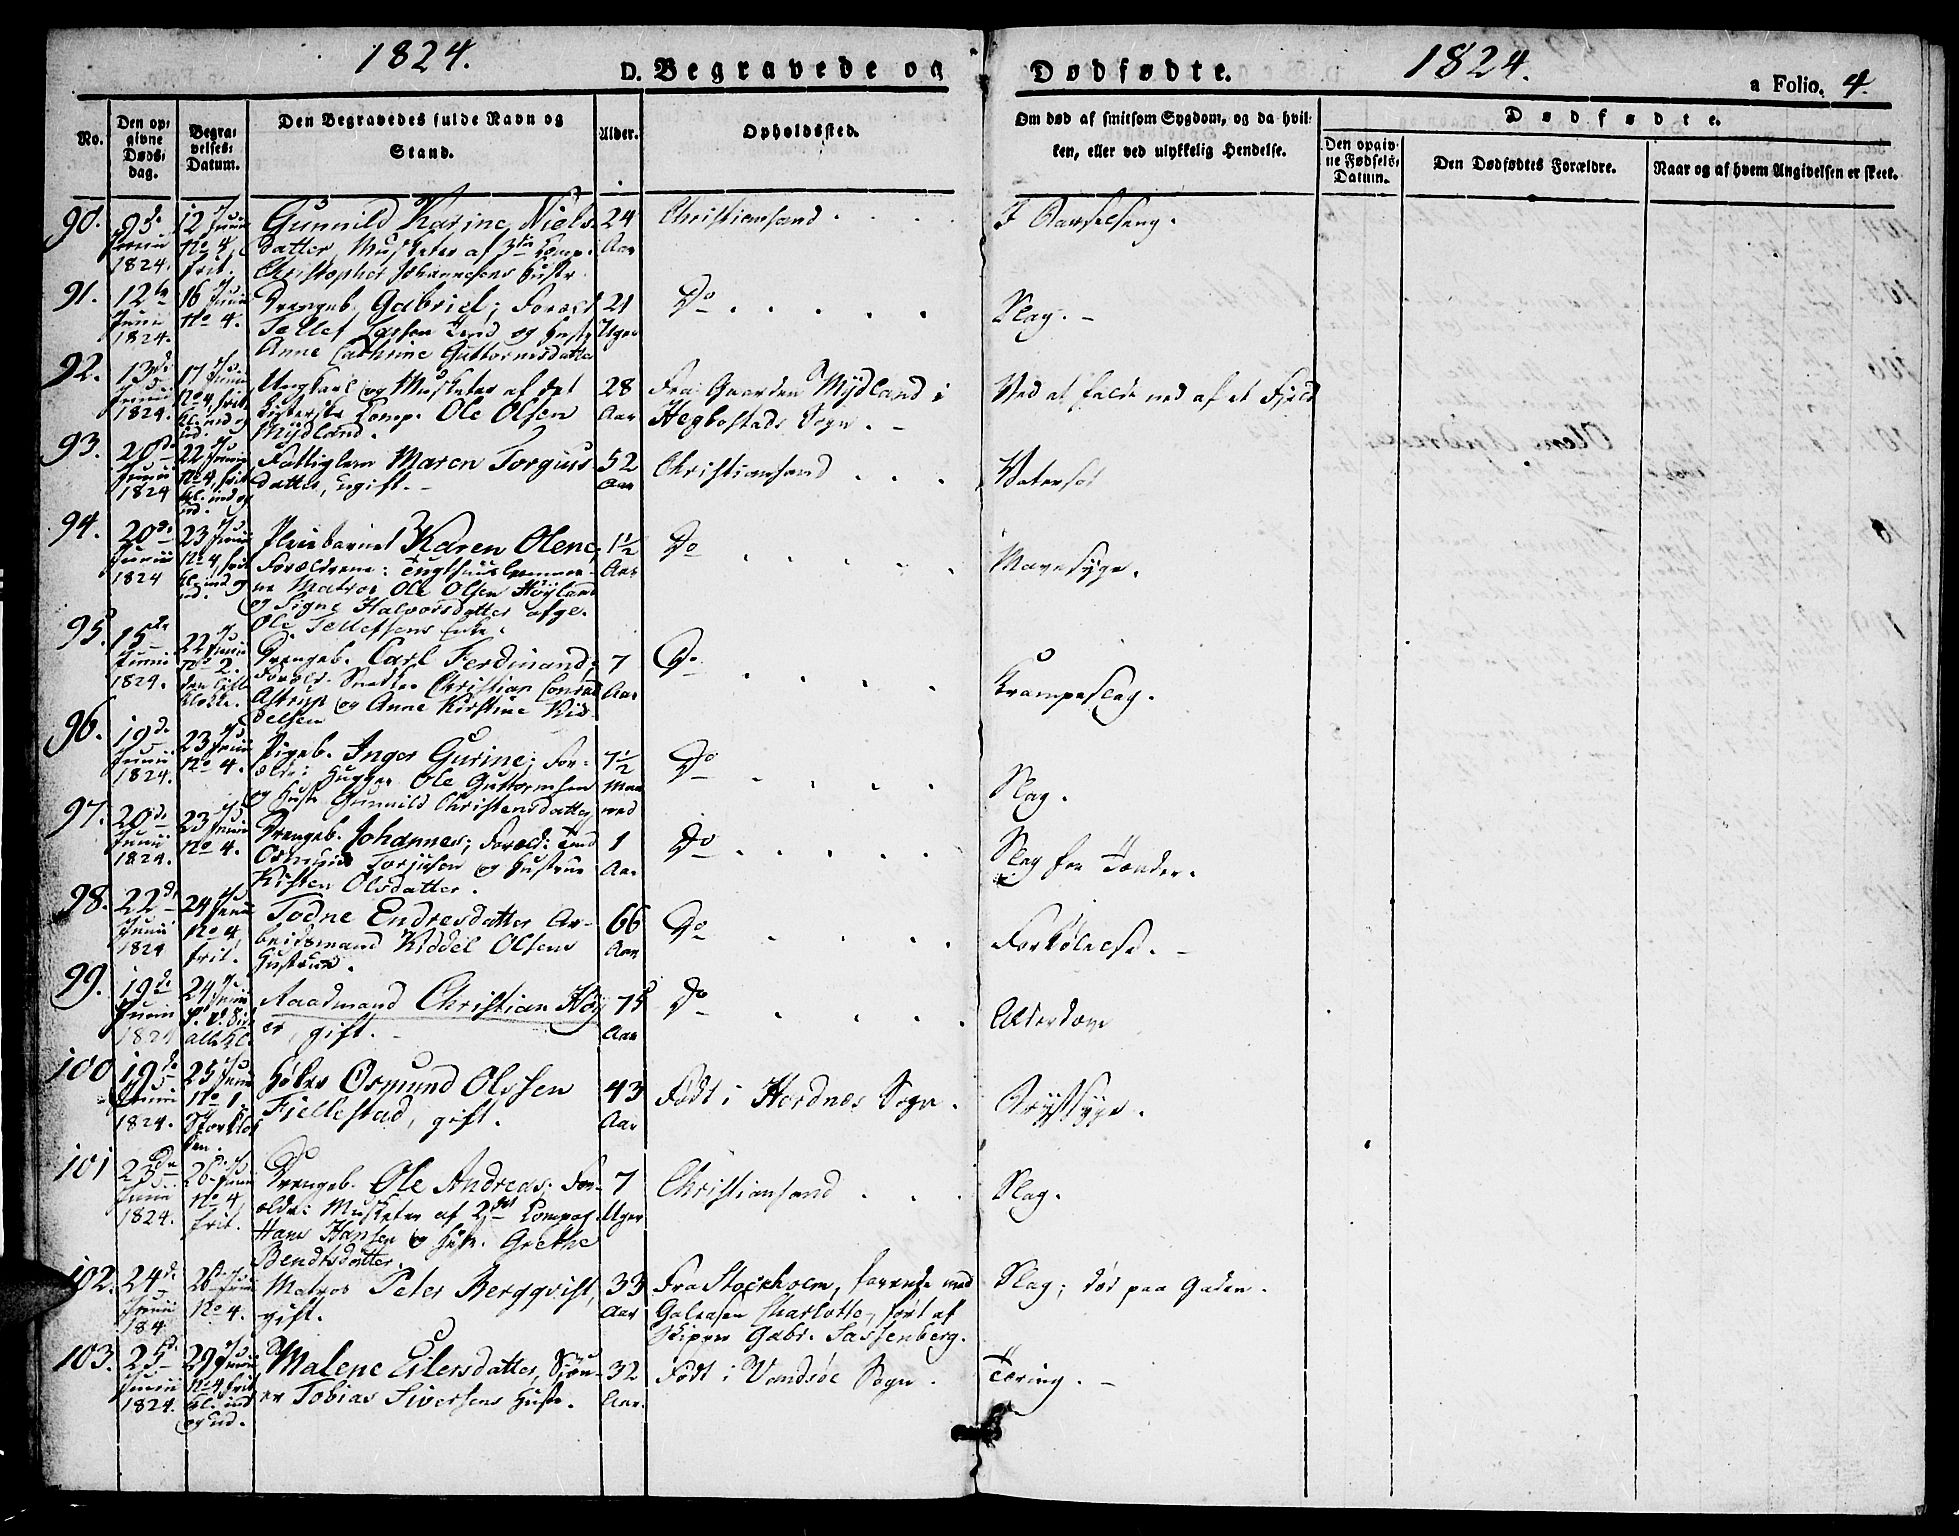 1824.
D. Begravede og
Dødfødte.
1824.
a Folio. 4.
No.
Den opgivne Døds-dag.
Begravelses-Datum.
Den Begravedes fulde Navn og Stand.
Alder.
Opholdssted.
Om død af smitsom Sygdom, og da hvilken, eller ved ulykkelig Hendelse.
Dødfødte.
Den opgivne Fødsels-Datum.
Den Dødfødtes Forældre.
Naar og af hvem Angivelsen er skeet.
90. 9de Junii 1824. 12 Junii No 4, frit.
Gunnild Karine Niels-
datter, Musketer af 3die Comp.
Christopher Johannesens Hustr.
24 Aar
Christiansand
I Barselseng.
91. 12te Junii 1824. 16 Junii No 4.
Drengeb. Gabriel; Foræld
Tellef Larsen Tend og Hust
Anne Cathrine Guttormsdatter
21 Uger
Do
Slag.
92. 13de Junii 1824. 17 Junii No 4, frit Kl. ind og ud.
Ungkarl og Musketer af det
Listerske Comp. Ole Olsen
Mydland.
28 Aar
Fra Gaarden Mydland i
Hegbostads Sogn.
Ved at falde ned af et Fjeld
93. 20de Junii 1824 22 Junii No 4, frit Kl. ind og ud.
Fattiglem Maren Torgius-
datter, ugift.
52 Aar
Christiansand
Vatersot
94. 20de Junii 1824 23 Junii No 4, frit Kl. ind og ud.
Pleiebarnet Karen Olene,
Forældrene: Tugthuuslemmer-
ne Matros Ole Olsen Høyland
og Signe Halvorsdatter afge.
Ole Tellefsens Enke.
1½ Aar
Do
Mavesyge.
95. 15de Junii 1824. 22 Junii No 2. den lille Klokke.
Drengeb. Carl Ferdinand;
Foræld. Snedker Christian Conrad
Astrup og Anne Kirstine Kid-
delsen
7 Aar
Do
Krampeslag.
96. 19de Junii 1824. 23 Junii No 4.
Pigeb. Inger Gurine; For-
ældre: Hugger Ole Guttormsen
og Hustr Gunnild Christensdatter
7½ Maaned
Do
Slag.
97. 20de Junii 1824. 23 Junii No 4.
Drengeb. Johannes; Foræld: Tend
Osmund Torjusen og Hustrue
Kirsten Olsdatter.
1 Aar
Do
Slag for Tænder.
98. 22de Junii 1824 24 Junii No 4 frit.
Todne Endresdatter Ar-
beidsmand Kiddel Olsens
Hustrue.
66 Aar
Do
Forkølelse.
99. 19de Junii 1824 24 Junii alle Kl.
Raadmand Christian Høy-
er, gift.
75 Aar
Do
Alderdom
100 19de Junii 1824. 25 Junii No 1. Storklokken.
Høker Osmund Olssen
Fjellestad, gift.
43 Aar
Født i Hordnes Sogn.
Brystsyge.
101 23de Junii 1824. 26 Junii No 4 frit.
Drengeb. Ole Andreas; For-
ældre: Musketer af 2det Compag.
Hans Hansen og Hustr. Grethe
Bendtsdatter.
7 Uger
Christiansand
Slag.
102. 24de Junii 184 26 Junii No 4.
Matros Peter Bergqvist,
gift.
33 Aar
Fra Stockholm, farende med
Galeasen Charlotte, ført af
Skipper Gabr. Sassenberg.
Slag; død paa Gaden.
103. 25de Junii 1824. 29 Junii No 4 frit Kl. ind og ud.
Malene Eilersdatter, Skou-
er Tobias Siversens Hustr.
32 Aar
Født i Vandsøe Sogn.
Tæring.